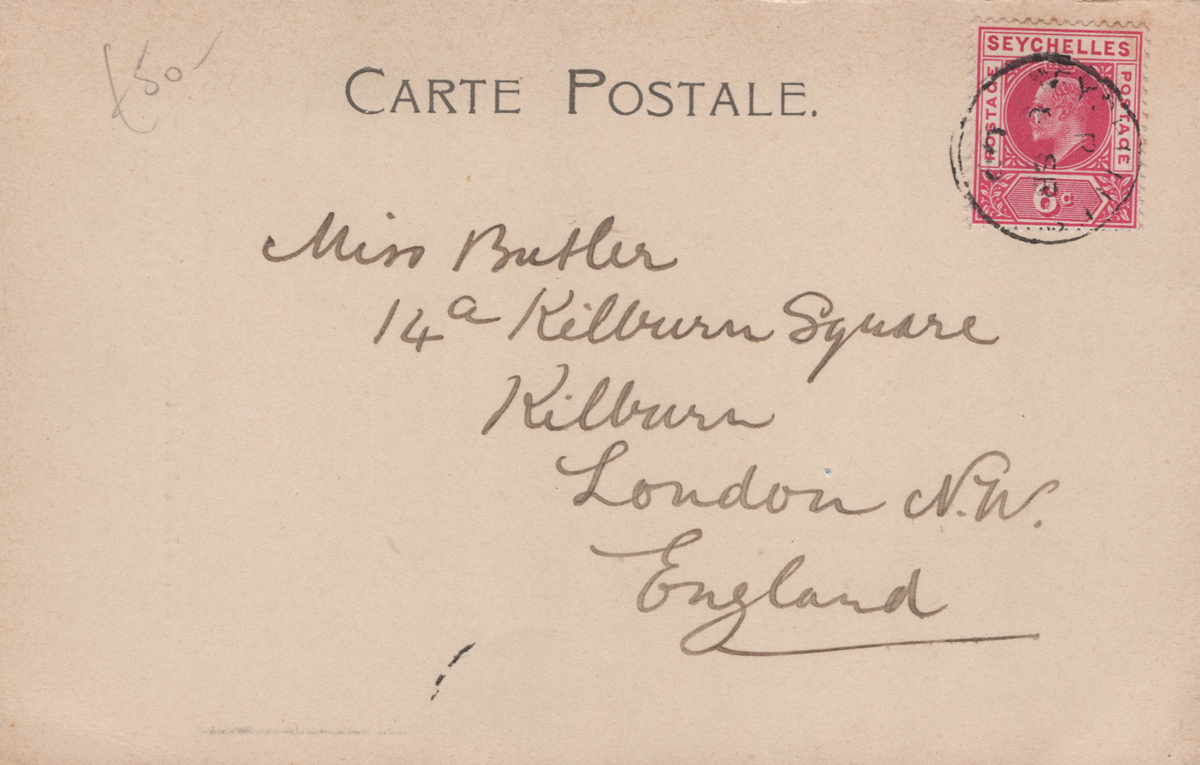 £50
CARTE POSTALE.
SEYCHELLES
POSTAGE
POSTAGE
6c
Miss Butler
14a Kilburn Square
Kilburn
London N.W.
England